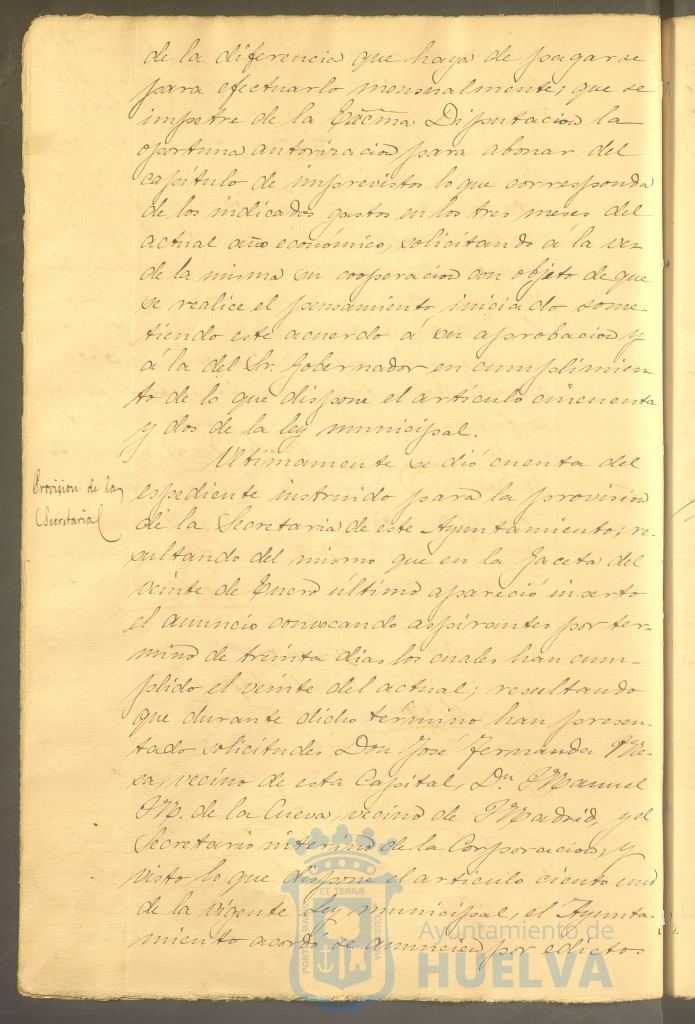 de la diferencia que haya de pagarse
para efectuarlo mensualmente; que se
impetre de la Excma. Diputacion la
oportuna autorizacion para abonar del
capítulo de imprevistos lo que corresponda
de los indicados gastos en los tres meses del
actual año económico, solicitando á la vez
de la misma su cooperacion con objeto de que
se realice el pensamiento iniciado some-
tiendo este acuerdo á su aprobacion y
á la del Sr. Gobernador en cumplimien
to de lo que dispone el artículo cincuenta
y dos de la ley municipal.
Provision de la
Secretaria
Ultimamente se dió cuenta del
espediente instruido para la provision
de la Secretaria de este Ayuntamiento; re-
sultando del mismo que en la Gaceta del
veinte de Enero último apareció inserto
el anuncio convocando aspirantes por ter-
mino de treinta dias los cuales han cum-
plido el veinte del actual; resultando
que durante dicho término han presen-
tado solicitudes Don José Fernandez Me-
sa, vecino de esta Capital, Dn. Manuel
M. de la Cueva, vecino de Madrid, y el
Secretario interino de la Corporacion; y
visto lo que dispone el artículo ciento uno
de la vigente Ley municipal, el Ayunta-
miento acordó se anuncien por edictos
PORTUS MARIS ET TERRAE CUSTODIA
Ayuntamiento de
HUELVA